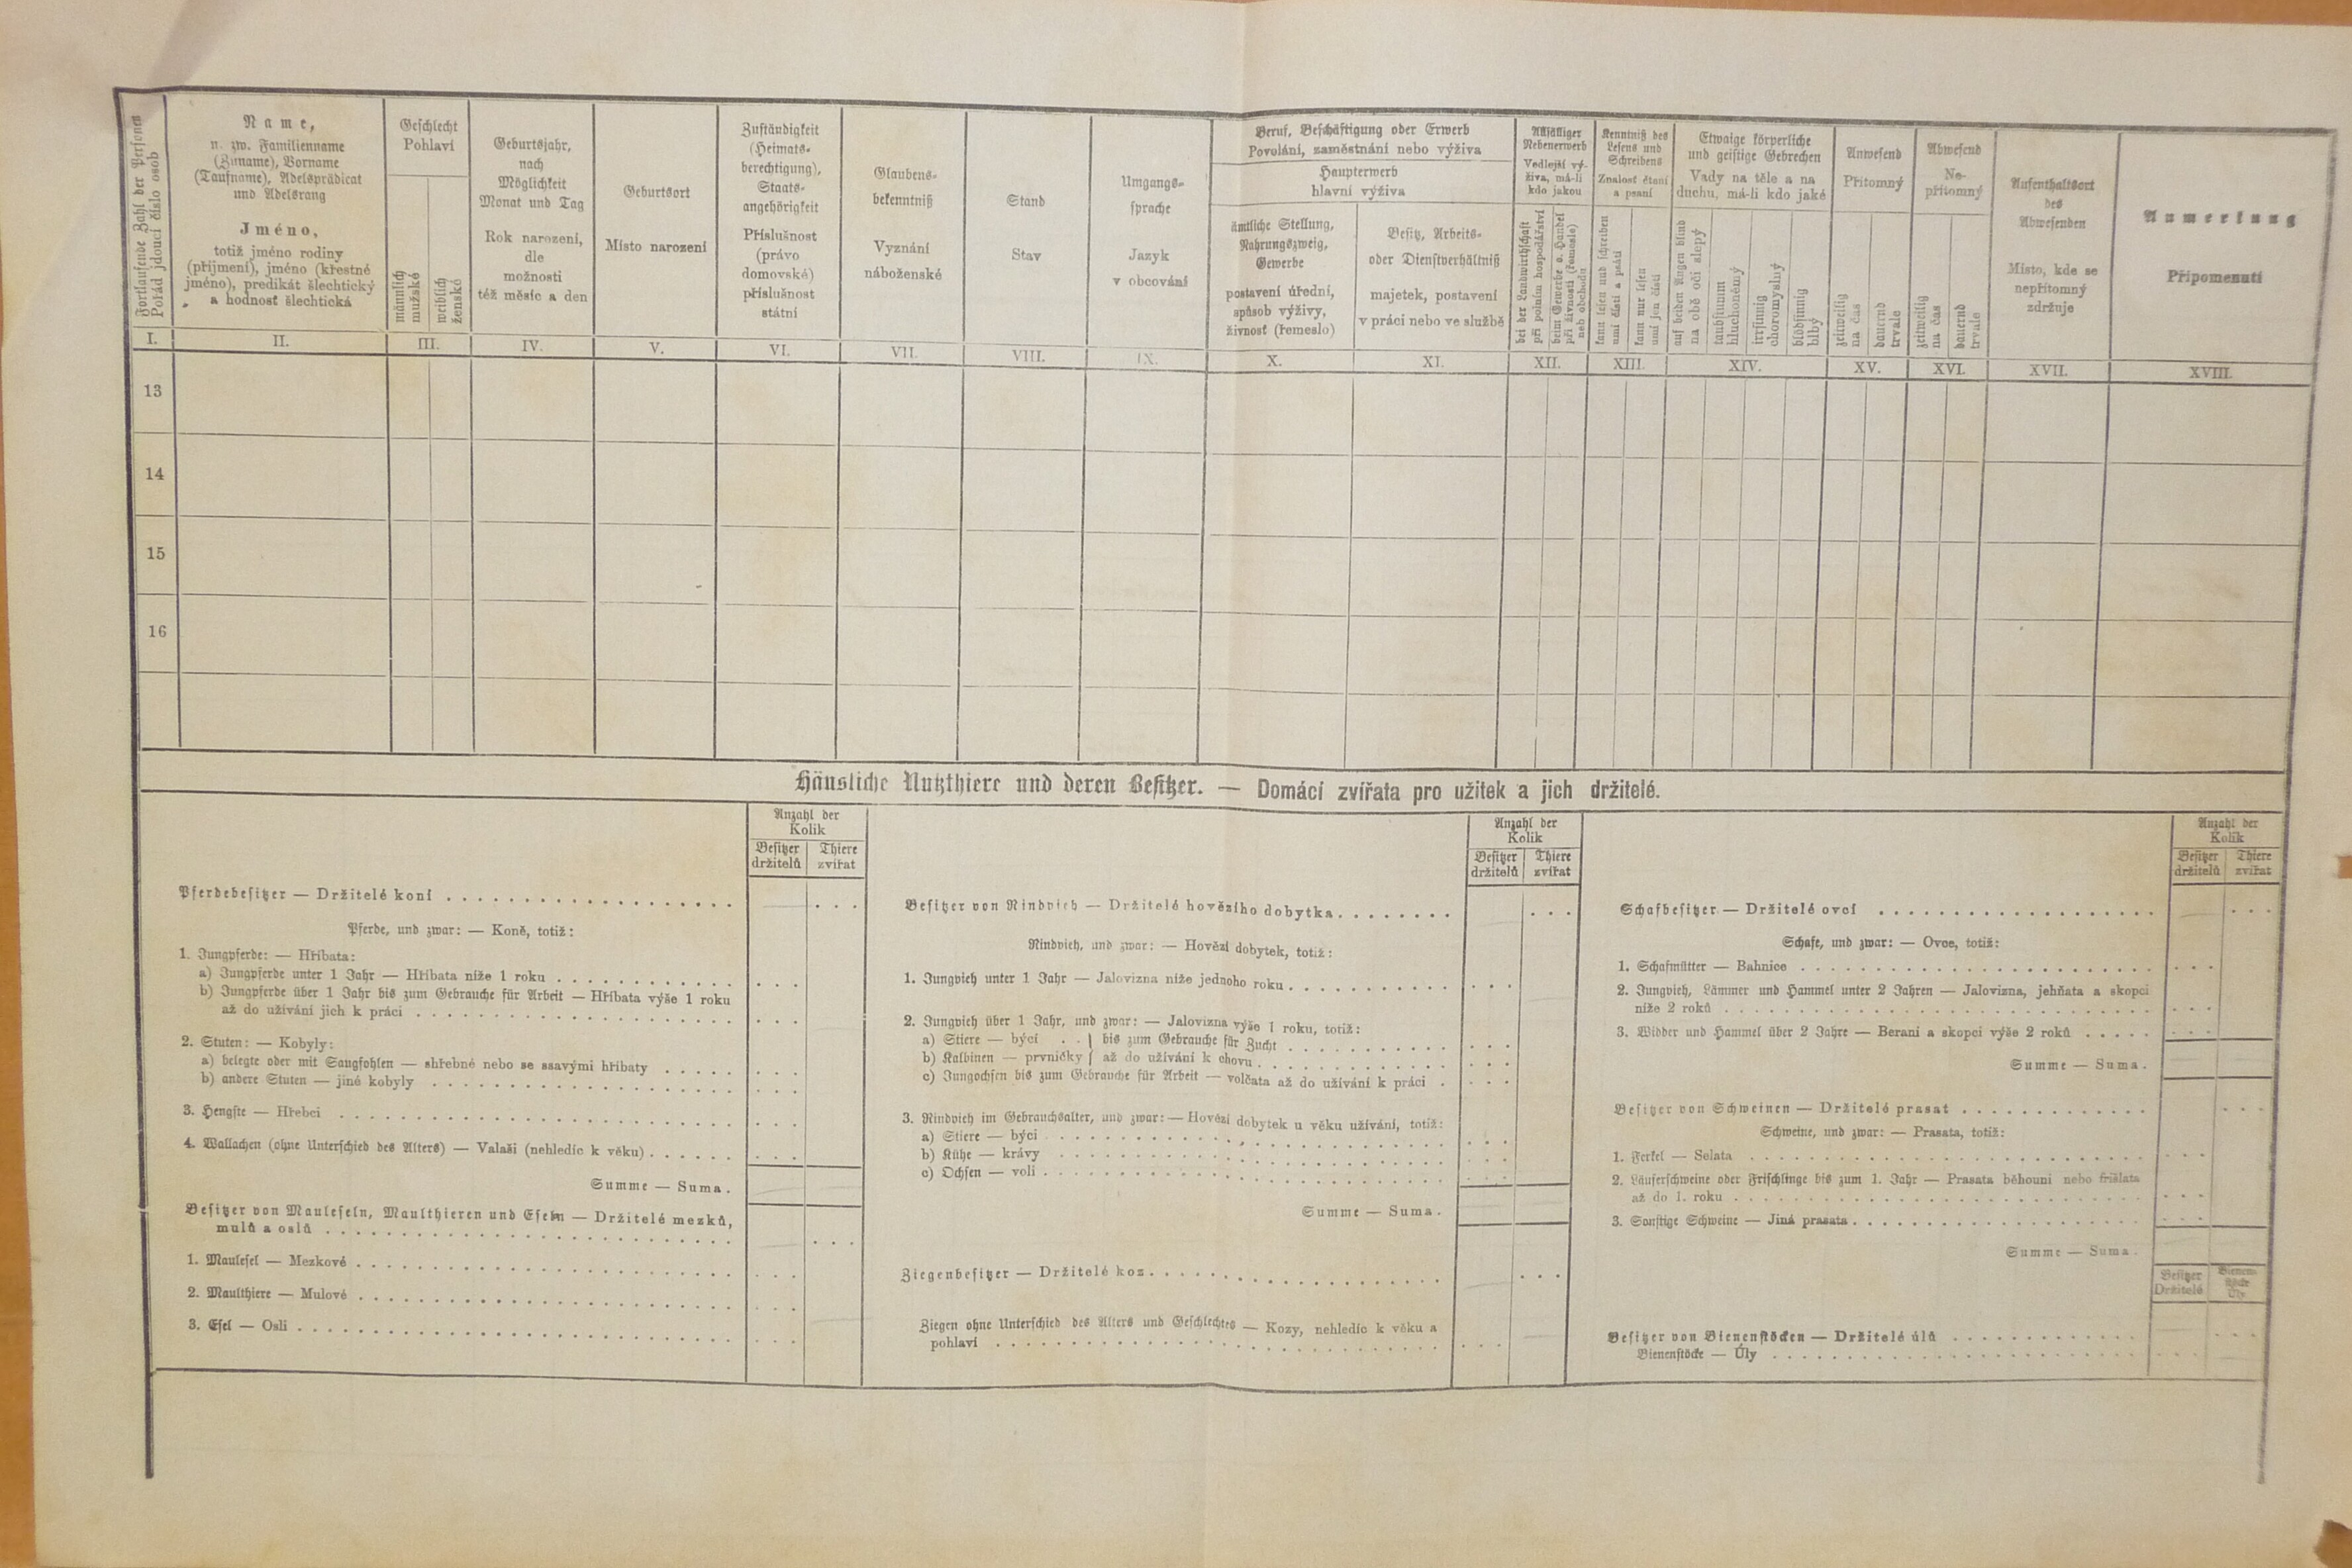 Fortlaufende Zahl der Personen
Pořád jdoucí číslo osob
Name,
u. zw. Familienname
(Zuname), Vorname
(Taufname), Adelsprädicat
und Adelsrang
Jméno,
totiž jméno rodiny
(příjmení), jméno (křestné
jméno), predikát šlechtický
a hodnost šlechtická
Geschlecht
Pohlaví
männlich
mužské
weiblich
ženské
Geburtsjahr,
nach
Möglichkeit
Monat und Tag
Rok narození,
dle
možnosti
též měsíc a den
Geburtsort
Místo narození
Zuständigkeit
(Heimats-
berechtigung),
Staats-
angehörigkeit
Příslušnost
(právo
domovské)
příslušnost
státní
Glaubens-
bekenntniß
Vyznání
náboženské
Stand
Stav
Umgangs-
sprache
Jazyk
v obcování
Beruf, Beschäftigung oder Erwerb
Povolání, zaměstnání nebo výživa
Haupterwerb
hlavní výživa
ämtliche Stellung,
Nahrungszweig,
Gewerbe
postavení úřední,
spůsob výživy,
živnosť (řemeslo)
Besitz, Arbeits-
oder Dienstverhältniß
majetek, postavení
v práci nebo ve službě
Allfälliger
Nebenerwerb
Vedlejší vý-
živa, má-li
kdo jakou
bei der Landwirthschaft
při polním hospodářství
beim Gewerbe o. Handel
při živnosti (řemesle)
neb obchodu
Kenntniß des
Lesens und
Schreibens
Znalosť čtaní
a psaní
kann lesen und schreiben
umí čísti a psáti
kann nur lesen
umí jen čísti
Etwaige körperliche
und geistige Gebrechen
Vady na těle a na
duchu, má-li kdo jaké
auf beiden Augen blind
na obě oči slepý
taubstumm
hluchoněmý
irrsinnig
choromyslný
blödsinnig
blbý
Anwesend
Přítomný
zeitweilig
na čas
dauernd
trvale
Abwesend
Ne-
přítomný
zeitweilig
na čas
dauernd
trvale
Aufenthaltsort
des
Abwesenden
Místo, kde se
nepřítomný
zdržuje
Anmerkung
Připomenutí
I. II. III. IV. V. VI. VII. VIII. IX. X. XI. XII. XIII. XIV. XV. XVI. XVII. XVIII.
13
14
15
16
Häusliche Nutzthiere und deren Besitzer. — Domácí zvířata pro užitek a jich držitelé.
Anzahl der
Kolik
Besitzer Thiere
držitelů zvířat
Pferdebesitzer — Držitelé koní
Pferde, und zwar: — Koně, totiž:
1. Jungpferde: — Hříbata:
a) Jungpferde unter 1 Jahr — Hříbata níže 1 roku
b) Jungpferde über 1 Jahr bis zum Gebrauche für Arbeit — Hříbata výše 1 roku
až do užívání jich k práci
2. Stuten: — Kobyly:
a) belegte oder mit Saugfohlen — shřebné nebo se ssavými hříbaty
b) andere Stuten — jiné kobyly
3. Hengste — Hřebci
4. Wallachen (ohne Unterschied des Alters) — Valaši (nehledíc k věku)
Summe — Suma.
Besitzer von Mauleseln, Maulthieren und Eseln — Držitelé mezků,
mulů a oslů
1. Maulesel — Mezkové
2. Maulthiere — Mulové
3. Esel — Osli
Anzahl der
Kolik
Besitzer Thiere
držitelů zvířat
Besitzer von Rindvieh — Držitelé hovězího dobytka
Rindvieh, und zwar: — Hovězí dobytek, totiž:
1. Jungvieh unter 1 Jahr — Jalovizna níže jednoho roku
2. Jungvieh über 1 Jahr, und zwar: — Jalovizna výše 1 roku, totiž:
a) Stiere — býci . . } bis zum Gebrauche für Zucht
b) Kalbinen — prvničky } až do užívání k chovu
c) Jungochsen bis zum Gebrauche für Arbeit — volčata až do užívání k práci
3. Rindvieh im Gebrauchsalter, und zwar: — Hovězí dobytek u věku užívání, totiž:
a) Stiere — býci
b) Kühe — krávy
c) Ochsen — voli
Summe — Suma.
Ziegenbesitzer — Držitelé koz
Ziegen ohne Unterschied des Alters und Geschlechtes — Kozy, nehledíc k věku a
pohlaví
Anzahl der
Kolik
Besitzer Thiere
držitelů zvířat
Schafbesitzer — Držitelé ovcí
Schafe, und zwar: — Ovce, totiž:
1. Schafmütter — Bahnice
2. Jungvieh, Lämmer und Hammel unter 2 Jahren — Jalovizna, jehňata a skopci
níže 2 roků
3. Widder und Hammel über 2 Jahre — Berani a skopci výše 2 roků
Summe — Suma.
Besitzer von Schweinen — Držitelé prasat
Schweine, und zwar: — Prasata, totiž:
1. Ferkel — Selata
2. Läuferschweine oder Frischlinge bis zum 1. Jahr — Prasata běhouni nebo frišlata
až do 1. roku
3. Sonstige Schweine — Jiná prasata
Summe — Suma.
Besitzer Bienen-
Držitelé stöcke
Úly
Besitzer von Bienenstöcken — Držitelé úlů
Bienenstöcke — Úly